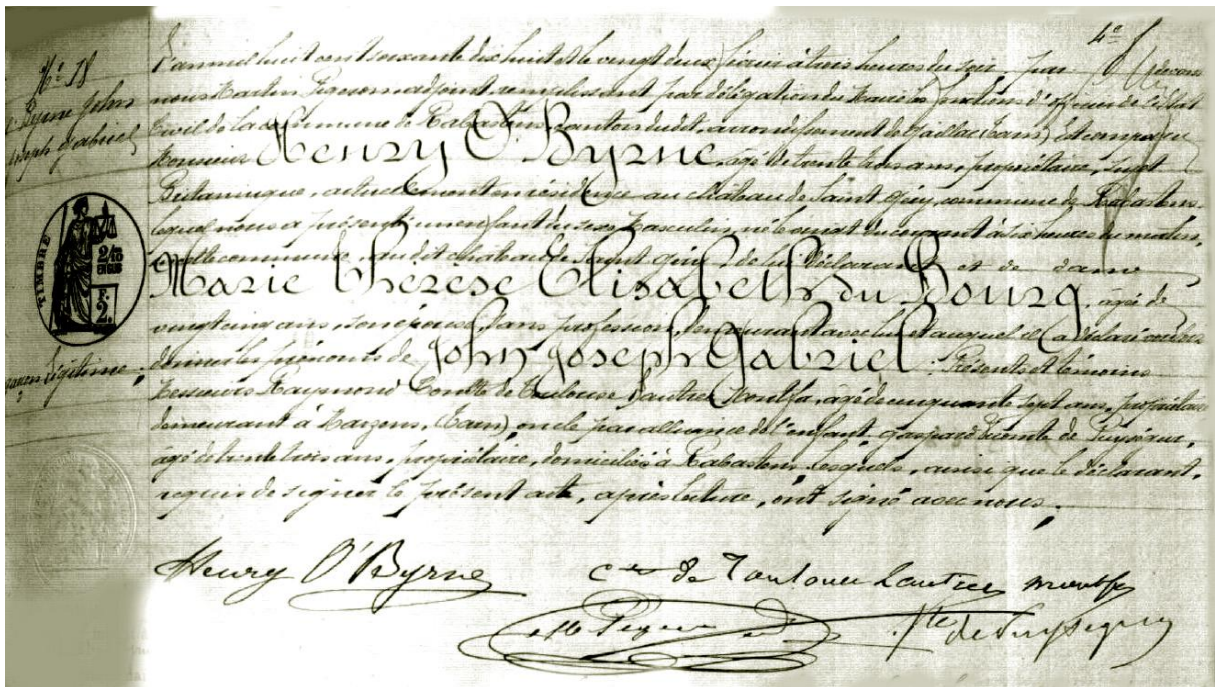 4e
N° 18
O'Byrne John
Joseph Gabriel
L'an mil huit cent soixante dix huit et le vingt deux février à trois heures du soir par devant
nous Martin Pigeron adjoint remplissant par délégation du Maire les fonctions d'officier de l'état
Civil de la commune de Rabastens, canton dudit, arrondissement de Gaillac (Tarn) est comparu
Monsieur Henry O'Byrne, âgé de trente trois ans, propriétaire, sujet
Britannique, actuellement en résidence au château de Saint Géry, commune de Rabastens
lequel nous a présenté un enfant du sexe Masculin, né le vingt du courant à six heures du matin,
commune, audit château de Saint Géry, de lui Déclarant et de dame
Marie Thérèse Elisabeth du Bourg, âgée de
vingt cinq ans, son épouse, sans profession, demeurant avec lui et auquel il a déclaré vouloir
donner les prénoms de John Joseph Gabriel. Présents et témoins
Messieurs Raymond Comte de Toulouse Lautrec Montfa, âgé de cinquante sept ans, propriétaire
demeurant à Marzens, (Tarn) oncle par alliance de l'enfant, Gaspard Vicomte de Puységur,
âgé de trente trois ans, propriétaire, domicilié à Rabastens, lesquels, ainsi que le déclarant,
requis de signer le présent acte, après lecture, ont signé avec nous.
légitime
TIMBRE
2/10
EN SUS
2
Henry O'Byrne
Cte de Toulouse Lautrec Montfa
Vte de Puysegur